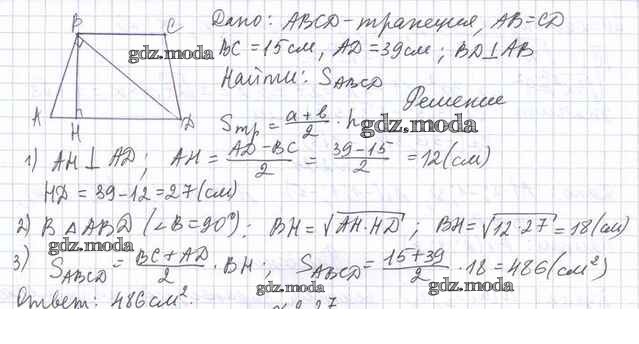 Дано: ABCD-трапеция, AB=CD
BC=15см, AD=39см; BD⊥AB
Найти: S_ABCD
B C
A H D
gdz.moda
Решение
S_тр = (a+b)/2 · h
gdz.moda
1) AH⊥AD; AH = (AD-BC)/2 = (39-15)/2 = 12(см)
HD = 39-12=27(см)
2) В △ABD (∠B=90°): BH=√(AH·HD); BH=√(12·27)=18(см)
gdz.moda
3) S_ABCD = (BC+AD)/2 · BH; S_ABCD = (15+39)/2 · 18=486(см²)
gdz.moda gdz.moda
Ответ: 486см².